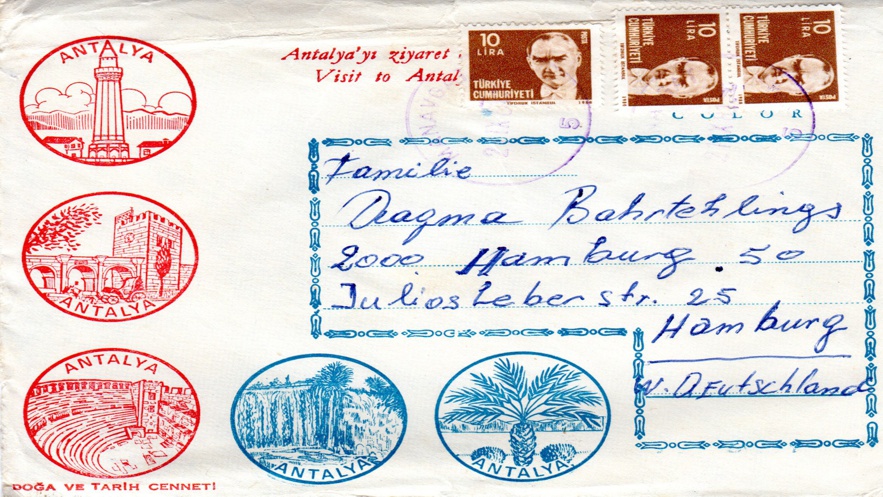 ANTALYA
Antalya'yı ziyaret
Visit to Antal
10
LİRA
POSTA
TÜRKİYE
CUMHURİYETİ
10
LİRA
TÜRKİYE
CUMHURİYETİ
POSTA
10
LİRA
TÜRKİYE
CUMHURİYETİ
POSTA
COLOR
5
5
Familie
Dagma Bahrtehlings
2000 Hamburg 50
Julios Leber str. 25
Hamburg
W. Deutschland
ANTALYA
ANTALYA
ANTALYA
ANTALYA
DOĞA VE TARİH CENNETİ